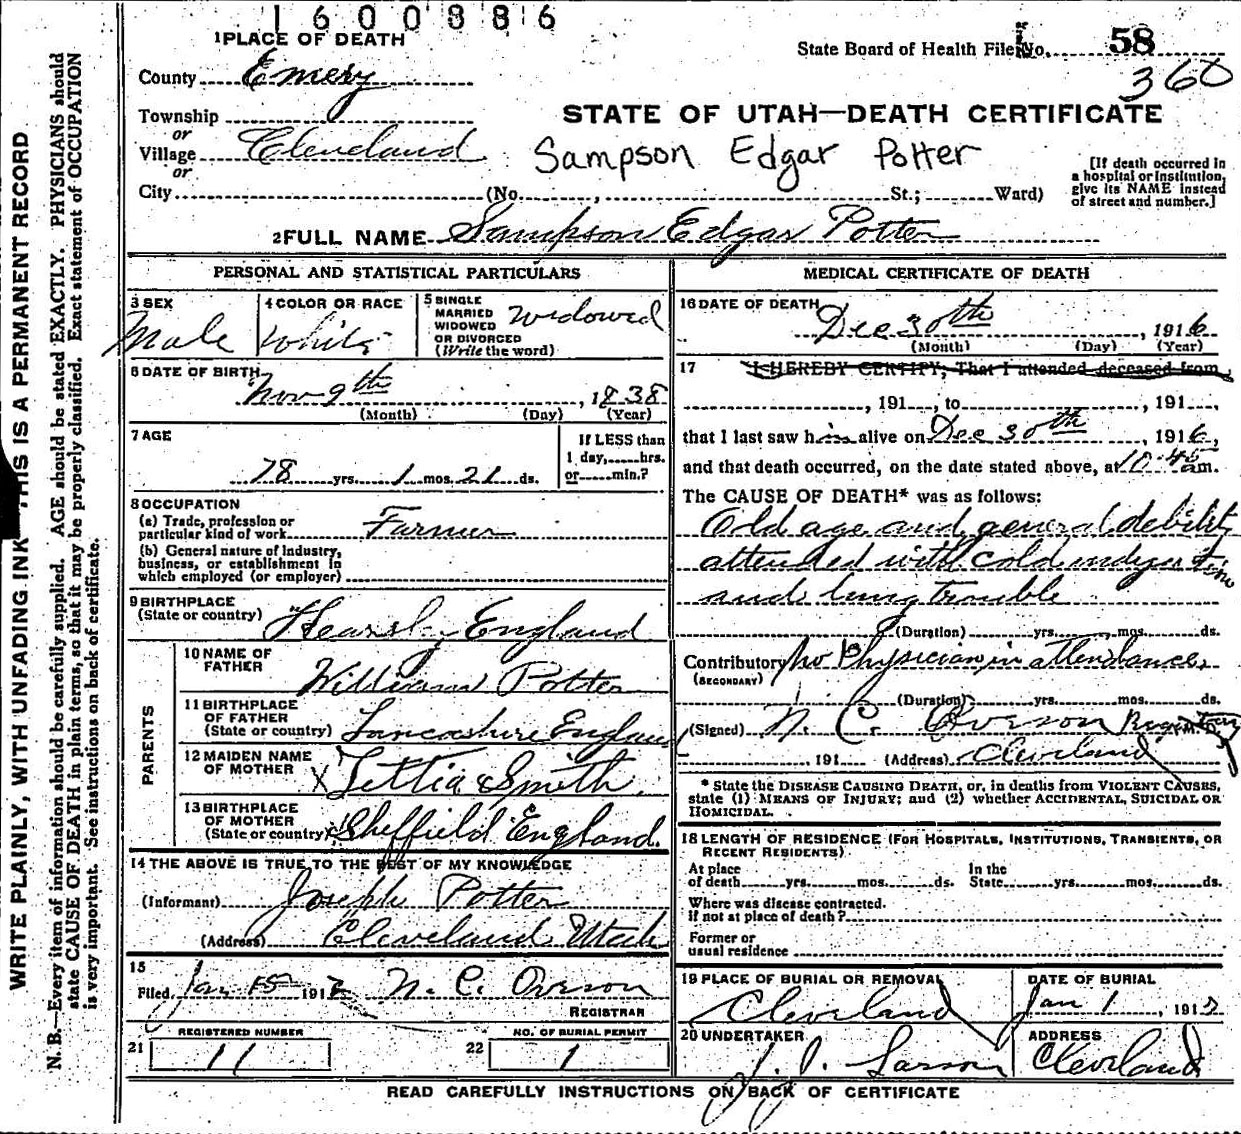 1600886
1 PLACE OF DEATH
State Board of Health File No. 58
County Emery
360
Township
STATE OF UTAH—DEATH CERTIFICATE
or
Village Cleveland
Sampson Edgar Potter
or
City (No. , St.; Ward)
[If death occurred in
a hospital or institution,
give its NAME instead
of street and number.]
2 FULL NAME Sampson Edgar Potter
PERSONAL AND STATISTICAL PARTICULARS
3 SEX
Male
4 COLOR OR RACE
White
5 SINGLE
MARRIED
WIDOWED
OR DIVORCED
(Write the word)
Widowed
6 DATE OF BIRTH
Nov 9th , 1838
(Month) (Day) (Year)
7 AGE
78 yrs. 1 mos. 21 ds.
If LESS than
1 day, hrs.
or min.?
8 OCCUPATION
(a) Trade, profession or
particular kind of work Farmer
(b) General nature of industry,
business, or establishment in
which employed (or employer)
9 BIRTHPLACE
(State or country) England
PARENTS
10 NAME OF
FATHER
William Potter
11 BIRTHPLACE
OF FATHER
(State or country) Lancashire England
12 MAIDEN NAME
OF MOTHER
X Smith
13 BIRTHPLACE
OF MOTHER
(State or country) X Sheffield England
14 THE ABOVE IS TRUE TO THE BEST OF MY KNOWLEDGE
(Informant) Joseph Potter
(Address) Cleveland Utah
15
Filed Jan 15 1917 N. C. Overson
REGISTRAR
REGISTERED NUMBER
21 11
NO. OF BURIAL PERMIT
22 1
MEDICAL CERTIFICATE OF DEATH
16 DATE OF DEATH
Dec 30th , 1916
(Month) (Day) (Year)
17 I HEREBY CERTIFY, That I attended deceased from
, 191 , to , 191 ,
that I last saw him alive on Dec 30th , 1916,
and that death occurred, on the date stated above, at 10:45 am.
The CAUSE OF DEATH* was as follows:
Old age and general debility
attended with cold indigestion
and lung trouble
(Duration) yrs. mos. ds.
Contributory No Physician in attendance.
(SECONDARY)
(Duration) yrs. mos. ds.
(Signed) N. C. Overson M. D.
, 191 (Address) Cleveland
* State the DISEASE CAUSING DEATH, or, in deaths from VIOLENT CAUSES,
state (1) MEANS OF INJURY; and (2) whether ACCIDENTAL, SUICIDAL OR
HOMICIDAL.
18 LENGTH OF RESIDENCE (FOR HOSPITALS, INSTITUTIONS, TRANSIENTS, OR
RECENT RESIDENTS)
At place
of death yrs. mos. ds.
In the
State yrs. mos. ds.
Where was disease contracted.
If not at place of death?
Former or
usual residence
19 PLACE OF BURIAL OR REMOVAL
Cleveland
DATE OF BURIAL
Jan 1 , 1917
20 UNDERTAKER
J. J. Larson
ADDRESS
Cleveland
READ CAREFULLY INSTRUCTIONS ON BACK OF CERTIFICATE
WRITE PLAINLY, WITH UNFADING INK THIS IS A PERMANENT RECORD
N. B.—Every item of information should be carefully supplied. AGE should be stated EXACTLY. PHYSICIANS should
state CAUSE OF DEATH in plain terms, so that it may be properly classified. Exact statement of OCCUPATION
is very important. See instructions on back of certificate.